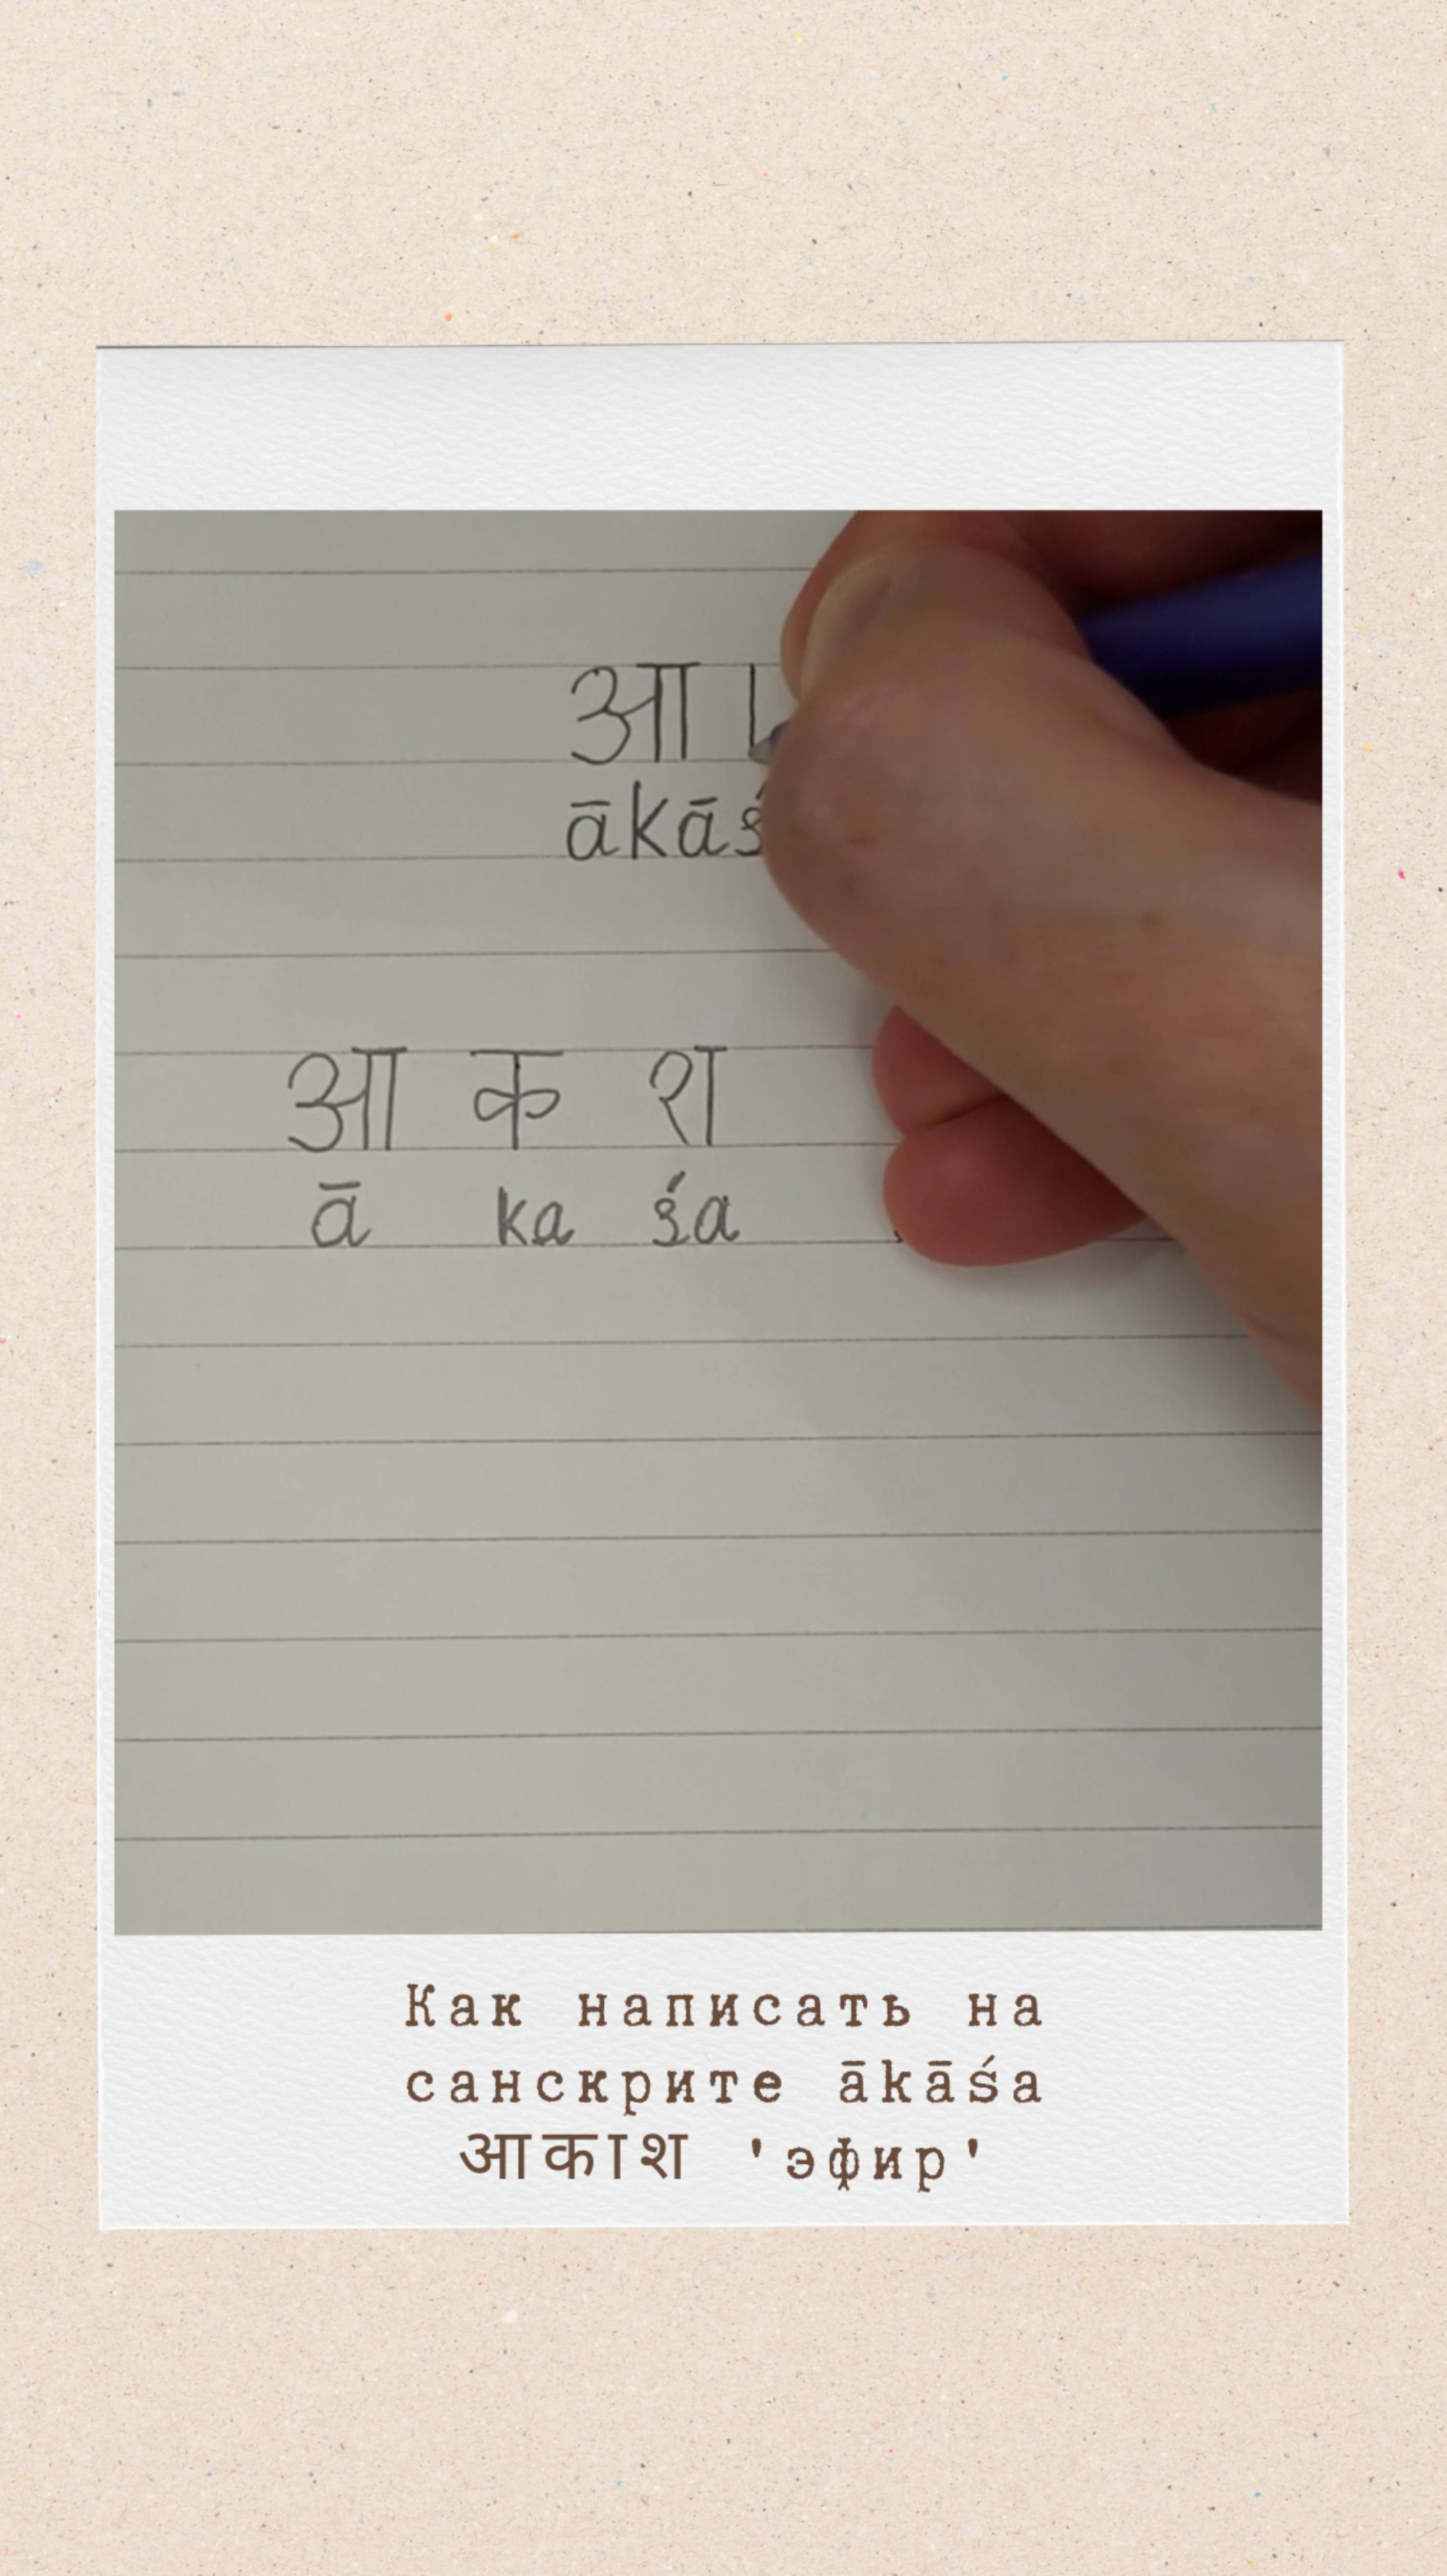 आ
ākāś
आ क श
ā ka śa
Как написать на
санскрите ākāśa
आकाश 'эфир'